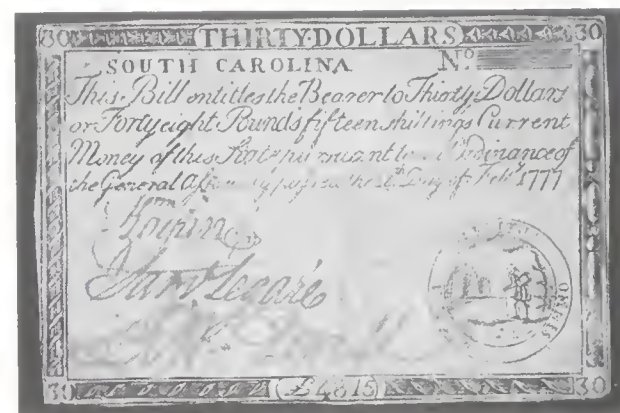 30 THIRTY DOLLARS 30
SOUTH CAROLINA. No.
This Bill entitles the Bearer to Thirty Dollars
or Fortyeight Pounds fifteen shillings Current
Money of this State pursuant to Ordinance of
the General passed the Day of Feby. 1777
Saml. Legaré
OMNES
30 £48 15 30